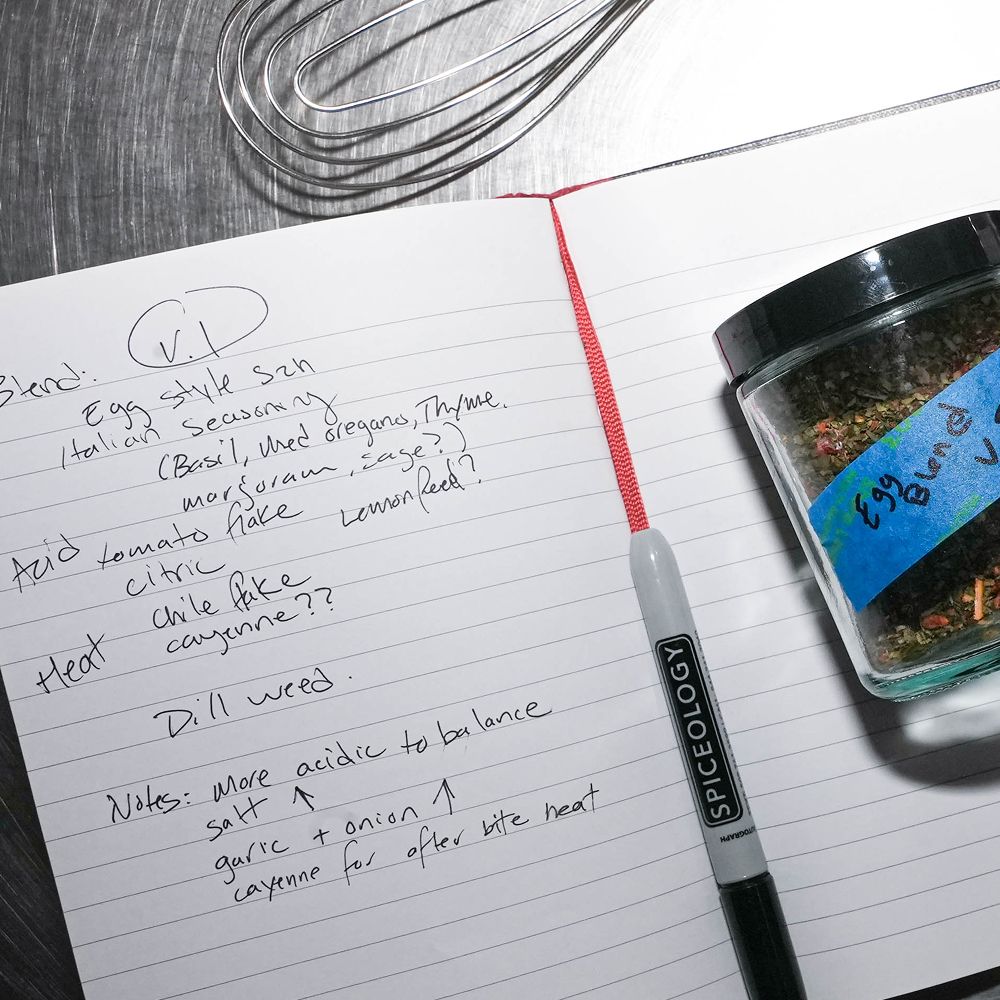 Blend: V.1
Egg style szn
Italian seasoning
(Basil, Med oregano, Thyme.
marjoram, sage?)
Acid tomato flake Lemon Peel?
citric
Heat chile flake
cayenne??
Dill weed.
Notes: more acidic to balance
salt ↑
garic + onion ↑
cayenne for after bite heat
SPICEOLOGY
Egg
Blend